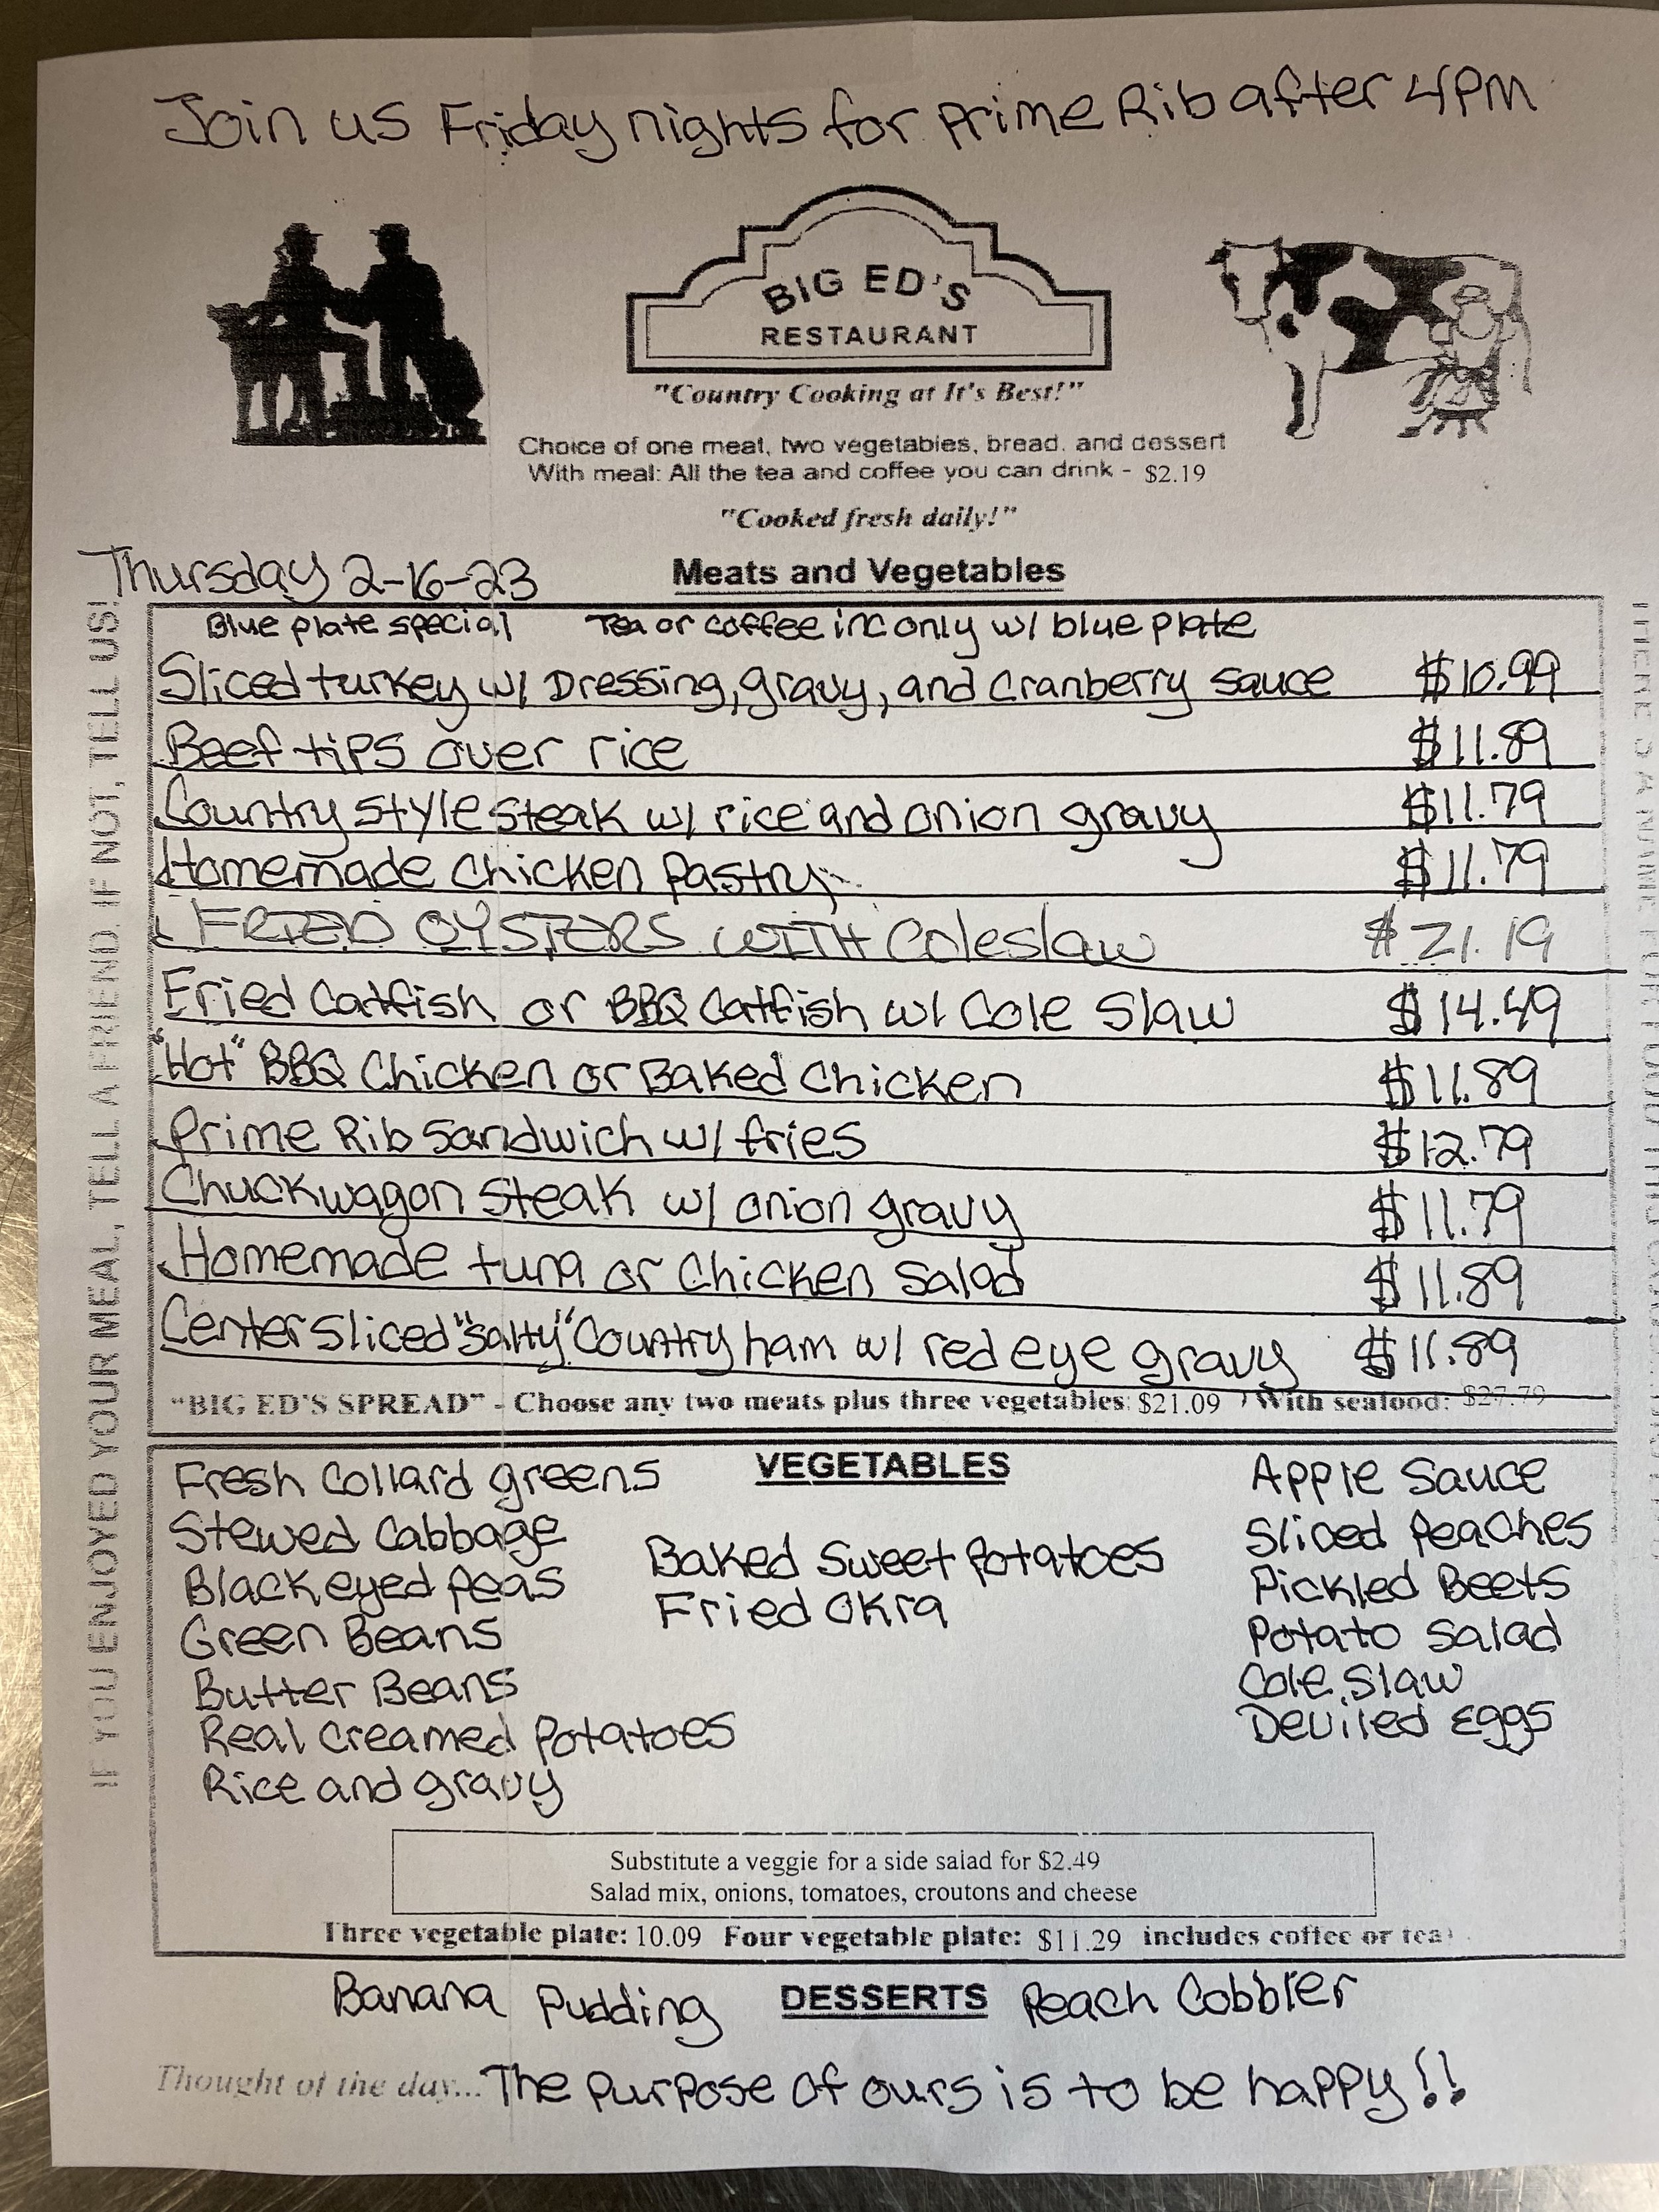 Join us Friday nights for prime Rib after 4PM
BIG ED'S
RESTAURANT
"Country Cooking at It's Best!"
Choice of one meat, two vegetables, bread, and dessert
With meal: All the tea and coffee you can drink - $2.19
"Cooked fresh daily!"
Thursday 2-16-23
Meats and Vegetables
IF YOU ENJOYED YOUR MEAL, TELL A FRIEND. IF NOT, TELL US!
Blue plate special Tea or coffee inc only w/ blue plate
Sliced turkey w/ Dressing, gravy, and Cranberry Sauce $10.99
Beef tips over rice $11.89
Country style steak w/ rice and onion gravy $11.79
Homemade Chicken Pastry $11.79
FRIED OYSTERS WITH Coleslaw $21.19
Fried Catfish or BBQ Catfish w/ Cole Slaw $14.49
"Hot" BBQ Chicken or Baked Chicken $11.89
Prime Rib Sandwich w/ fries $12.79
Chuckwagon Steak w/ onion gravy $11.79
Homemade tuna or Chicken Salad $11.89
Center Sliced "Salty" Country ham w/ red eye gravy $11.89
"BIG ED'S SPREAD" - Choose any two meats plus three vegetables: $21.09 With seafood: $27.79
VEGETABLES
Fresh Collard greens
Stewed Cabbage
Black eyed Peas
Green Beans
Butter Beans
Real Creamed Potatoes
Rice and gravy
Baked Sweet Potatoes
Fried Okra
Apple Sauce
Sliced Peaches
Pickled Beets
Potato Salad
Cole Slaw
Deviled Eggs
Substitute a veggie for a side salad for $2.49
Salad mix, onions, tomatoes, croutons and cheese
Three vegetable plate: 10.09 Four vegetable plate: $11.29 includes coffee or tea
Banana Pudding DESSERTS Peach Cobbler
Thought of the day... The purpose of ours is to be happy!!